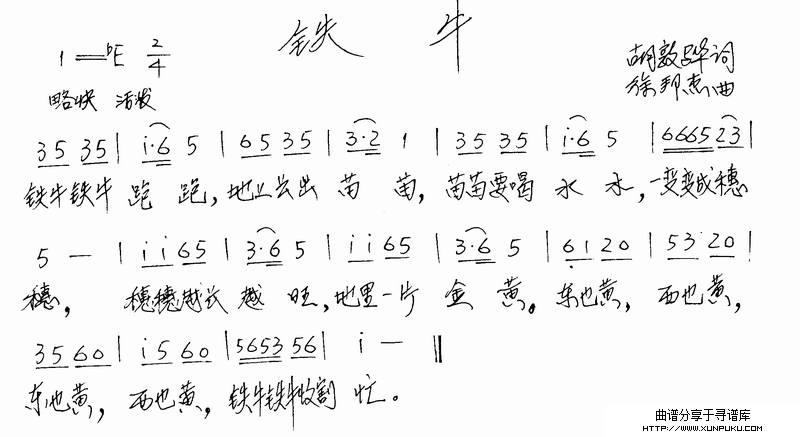 铁 牛
1=♭E 2/4
胡敦骅词
徐邦杰曲
略快 活泼
3 5 3 5 | i·6 5 | 6 5 3 5 | 3·2 1 | 3 5 3 5 | i·6 5 | 6 6 6 5 2 3 |
铁牛铁牛 跑 跑，地上云出 苗 苗，苗苗要喝 水 水，一变变成穗
5 — | i i 6 5 | 3·6 5 | i i 6 5 | 3·6 5 | 6 1 2 0 | 5 3 2 0 |
穗， 穗穗越长 越 旺，地里一片 金 黄。东也黄，西也黄，
3 5 6 0 | i 5 6 0 | 5 6 5 3 5 6 | i — ‖
东也黄，西也黄，铁牛铁牛收割 忙。
曲谱分享于寻谱库
HTTP://WWW.XUNPUKU.COM